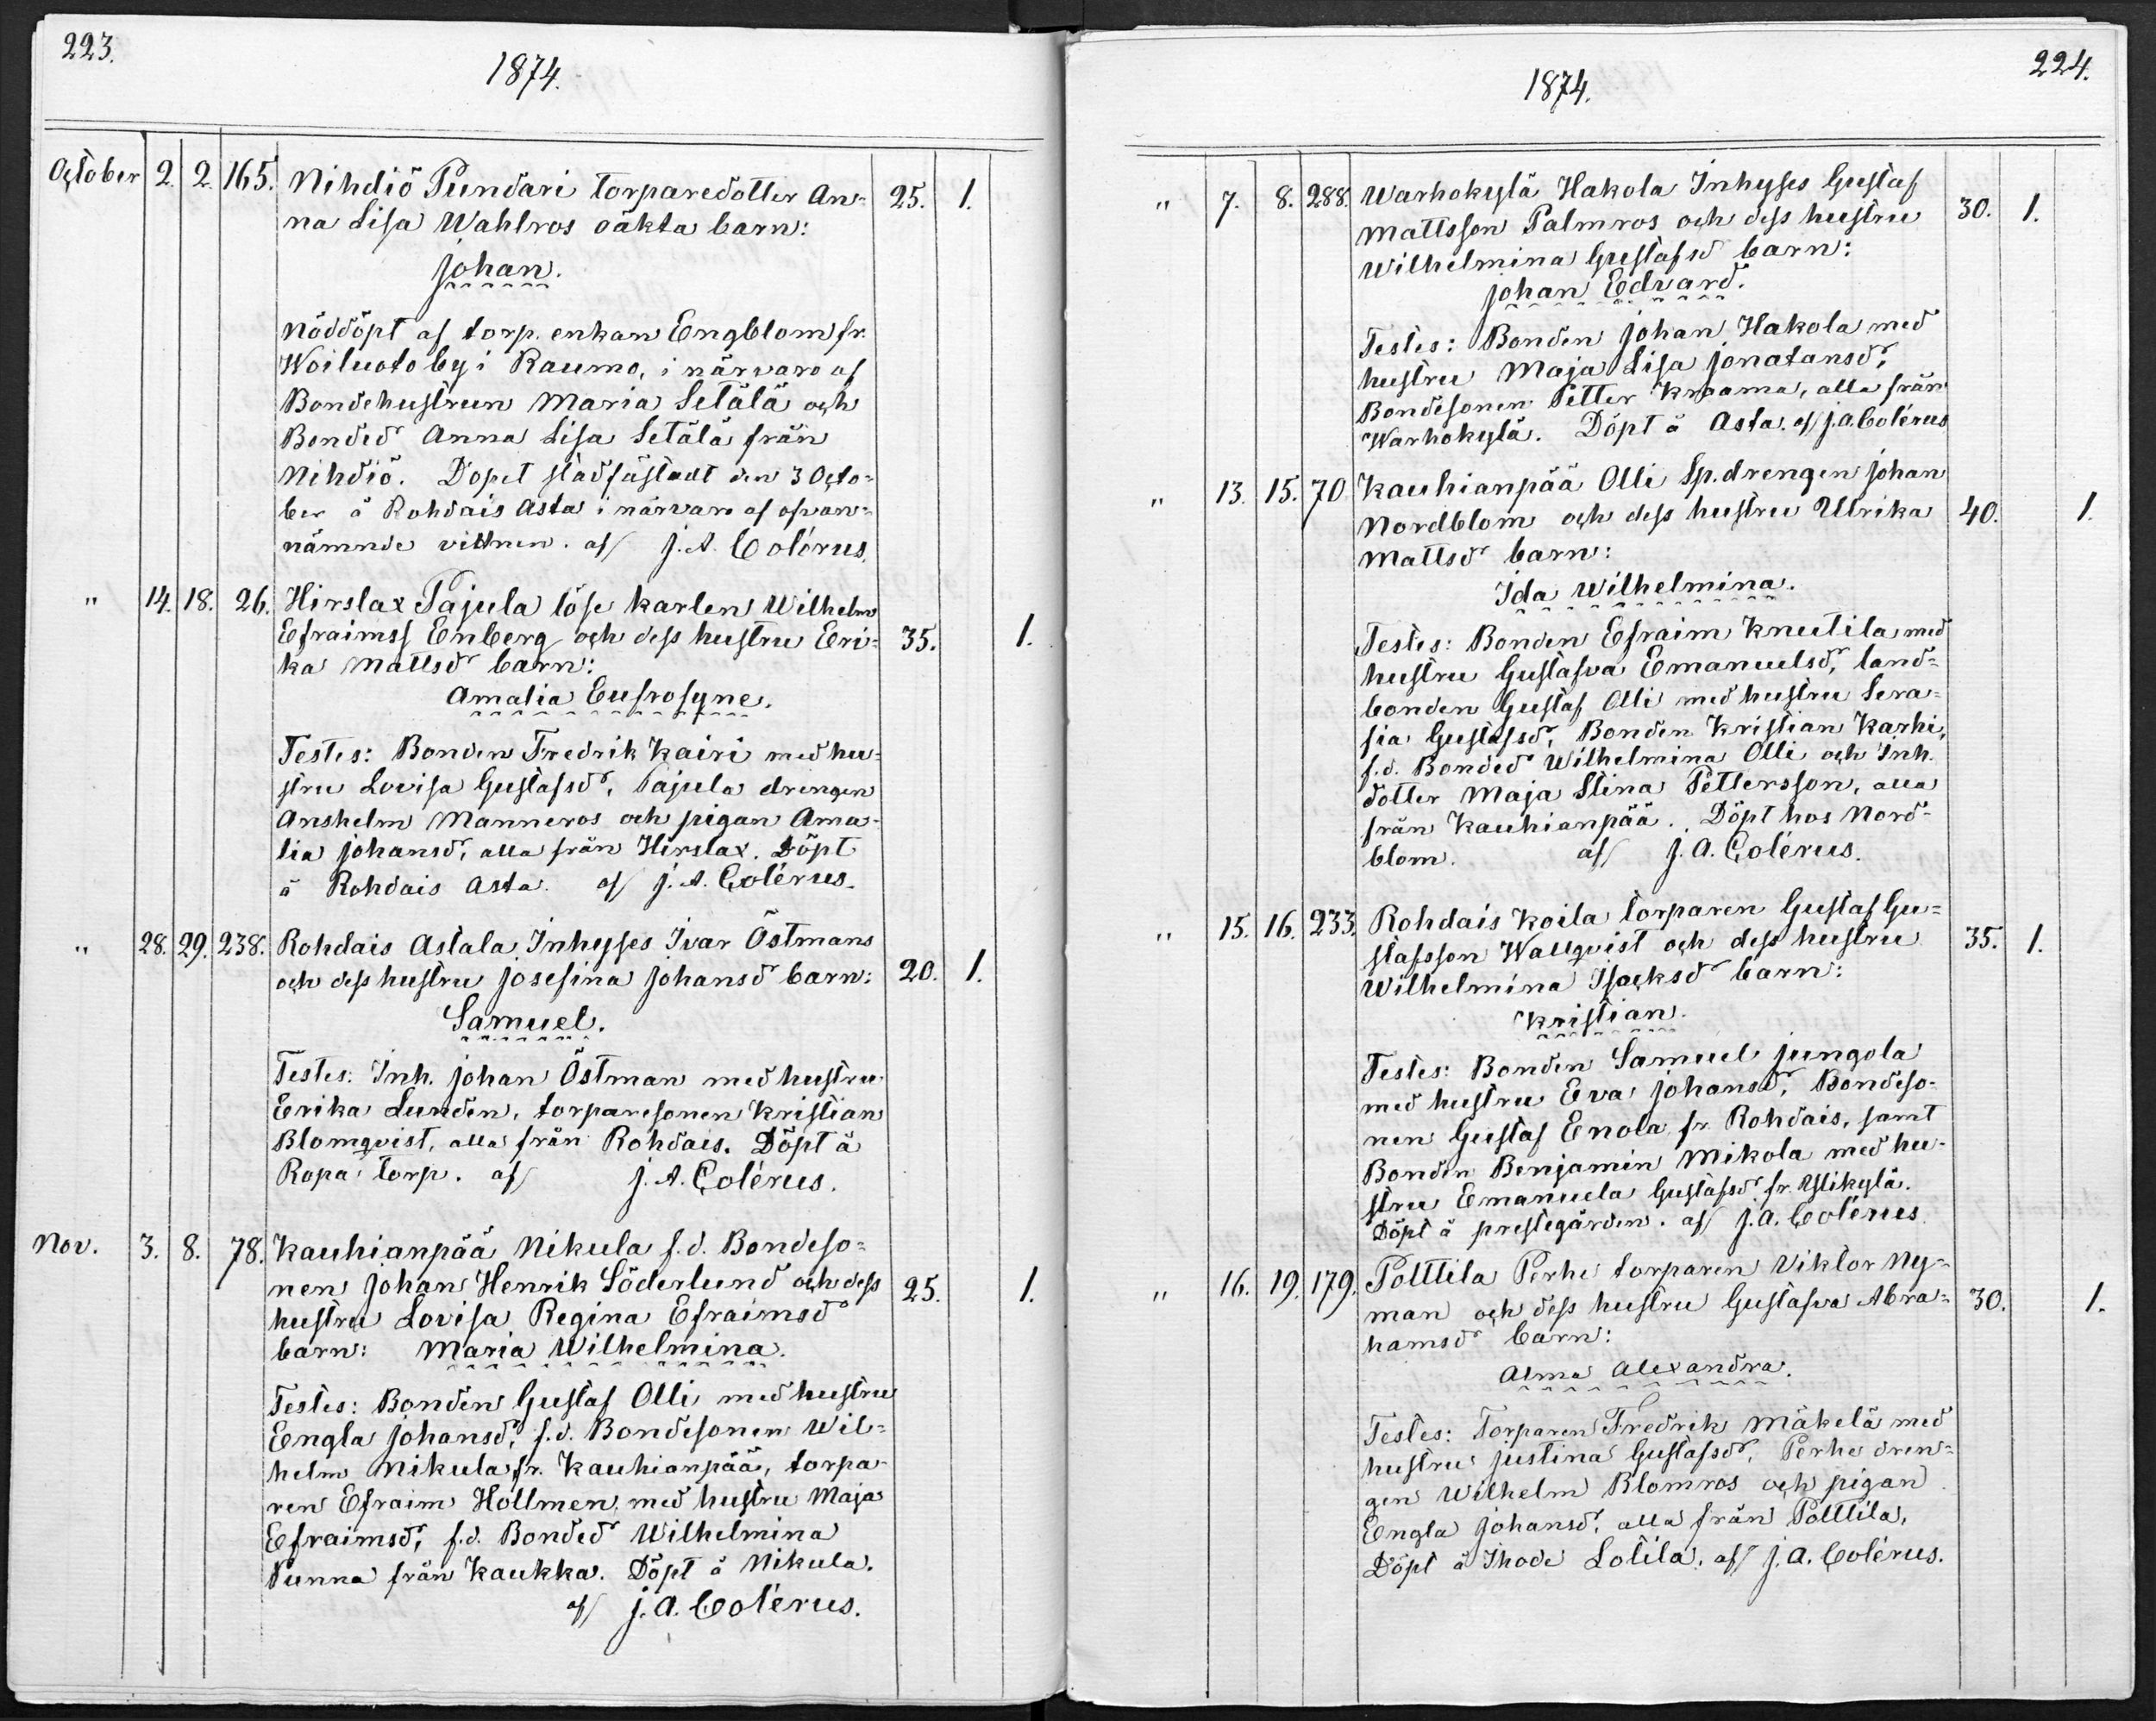 223.
1874.
October 2. 2. 165. Nihdiö Pundari torparedotter An- 25. 1.
na Lisa Wahlros oäkta barn:
Johan.
Nöddöpt af torp. enkan Engblom fr.
Woiluoto by i Raumo, i närvaro af
Bondehustrun Maria Setälä och
Bonded Anna Lisa Setälä från
Nihdiö. Dopet stadfästadt den 3 Octo-
ber å Rohdais Asta i närvaro af ofvan-
nämnde vittnen. af J. A. Colérus.
" 14. 18. 26. Hirslax Pajula löse karlen Wilhelm
Efraimss Enberg och dess hustru Eri- 35. 1.
ka Mattsd barn:
Amalia Eufrosyne.
Testes: Bonden Fredrik Kairi med hu-
stru Lovisa Gustafsd, Pajula drengen
Anshelm Manneros och pigan Ama-
lia Johansd, alla från Hirslax. Döpt
å Rohdais Asta. af J. A. Colérus.
" 28. 29. 238. Rohdais Astala Inhyses Ivar Östmans
och dess hustru Josefina Johansd barn: 20. 1.
Samuel.
Testes: Inh. Johan Östman med hustru
Erika Lunden, torparesonen Kristian
Blomqvist, alla från Rohdais. Döpt å
Ropa torp. af J. A. Colérus.
Nov. 3. 8. 78. Kauhianpää Nikula f.d. Bondeso-
nen Johan Henrik Söderlund och dess 25. 1.
hustru Lovisa Regina Efraimsd
barn: Maria Wilhelmina.
Testes: Bonden Gustaf Olli med hustru
Engla Johansd, f.d. Bondesonen Wil-
helm Nikula fr. Kauhianpää, torpa-
ren Efraim Hollmen med hustru Maja
Efraimsd, f.d. Bonded Wilhelmina
Nunna från Kaukka. Döpt å Nikula.
af J. A. Colérus.
224.
1874.
" 7. 8. 288. Warhokylä Hakola Inhyses Gustaf
Mattsson Palmros och dess hustru 30. 1.
Wilhelmina Gustafsd barn:
Johan Edvard.
Testes: Bonden Johan Hakola med
hustru Maja Lisa Jonatansd,
Bondesonen Petter Kraama, alla från
Warhokylä. Döpt å Asta. af J. A. Colérus
" 13. 15. 70. Kauhianpää Olli Sp. drengen Johan
Nordblom och dess hustru Ulrika 40. 1.
Mattsd barn:
Ida Wilhelmina.
Testes: Bonden Efraim Knutila med
hustru Gustafva Emanuelsd, land-
bonden Gustaf Olli med hustru Sera-
fia Gustafsd, Bonden Kristian Karhi,
f.d. Bonded Wilhelmina Olli och Inh.
dotter Maja Stina Pettersson, alla
från Kauhianpää. Döpt hos Nord-
blom. af J. A. Colérus.
" 15. 16. 233. Rohdais Koila torparen Gustaf Gu-
stafsson Wallqvist och dess hustru 35. 1.
Wilhelmina Isacksd barn:
Kristian.
Testes: Bonden Samuel Jungola
med hustru Eva Johansd, Bondeso-
nen Gustaf Enola fr. Rohdais, samt
Bonden Benjamin Mikola med hu-
stru Emanuela Gustafsd fr. Ylikylä.
Döpt å prestegården. af J. A. Colérus.
" 16. 19. 179. Polttila Perhe torparen Viktor Ny-
man och dess hustru Gustafva Abra- 30. 1.
hamsd barn:
Alma Alexandra.
Testes: Torparen Fredrik Mäkelä med
hustru Justina Gustafsd, Perhe dren-
gen Wilhelm Blomros och pigan
Engla Johansd, alla från Polttila,
Döpt å Ihode Lotila. af J. A. Colérus.